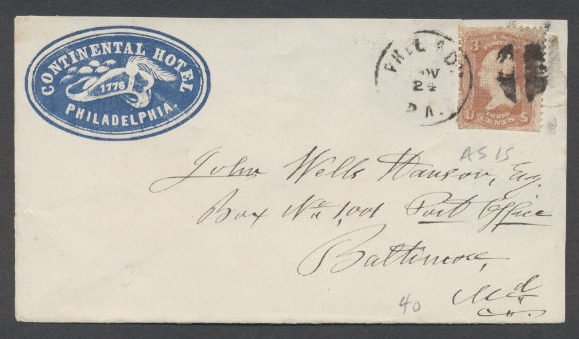 CONTINENTAL HOTEL
1776
PHILADELPHIA.
PHILAD
NOV
24
PA.
3 3
U THREE CENTS S
AS IS
John Wells Hanson, Esq.
Box No. 1,001 Post Office
Baltimore,
Md
40